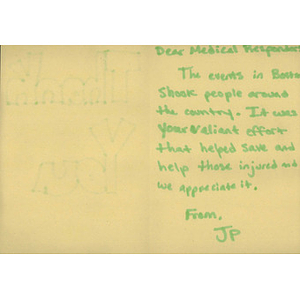 Thank
You
Dear Medical Responder
The events in Bosto
Shook people around
the country. It was
your valiant effort
that helped save and
help those injured and
we Appreciate it.
From,
JP